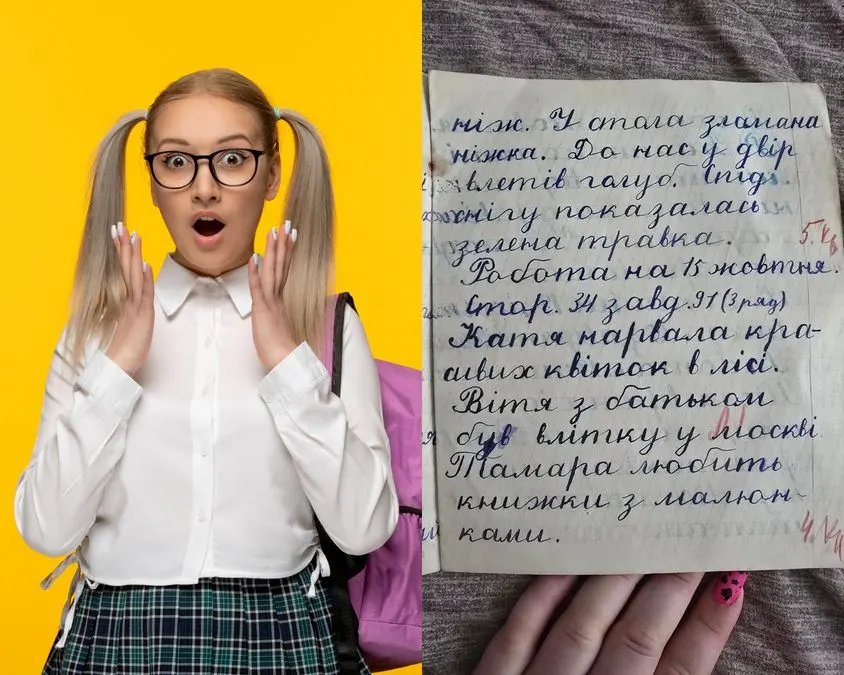 ніж. У стола зламана
ніжка. До нас у двір
влетів голуб. Спід
снігу показалась
зелена травка. 5.
Робота на 15 жовтня.
Стор. 34 завд. 91 (3 ряд)
Катя нарвала кра-
сивих квіток в лісі.
Вітя з батьком
був влітку у Москві
Тамара любить
книжки з малюн-
ками. 4.